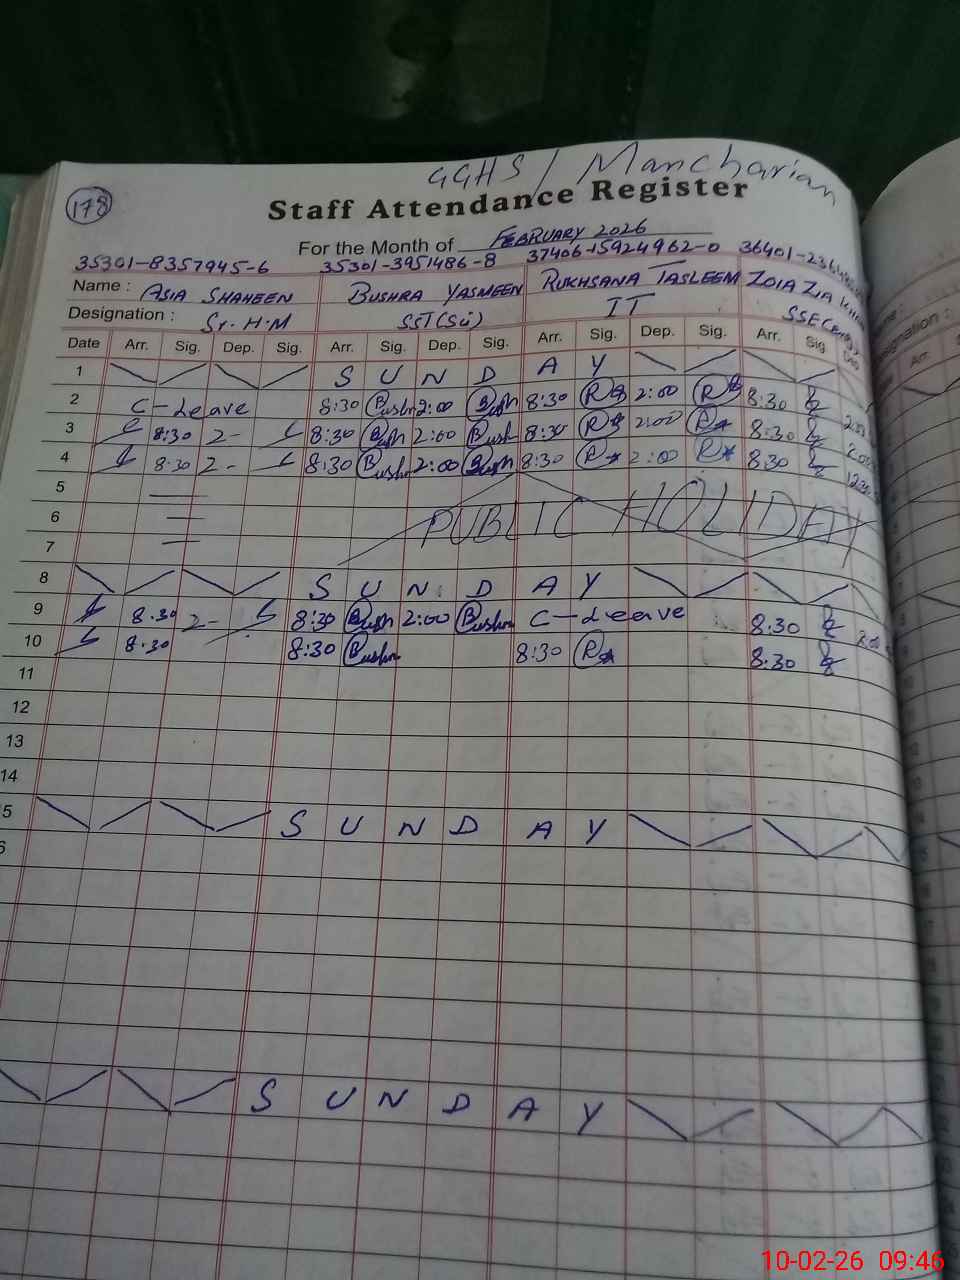 GGHS / Mancharian
178
Staff Attendance Register
For the Month of FEBRUARY 2026
35301-8357945-6 35301-3951486-8 37406-15924962-0 36401-2364
Name : ASIA SHAHEEN BUSHRA YASMEEN RUKHSANA TASLEEM ZOIA ZIA
Designation : Sr. H.M SST(Sci) IT
Date Arr. Sig. Dep. Sig. Arr. Sig. Dep. Sig. Arr. Sig. Dep. Sig. Arr. Sig. Dep
1 S U N D A Y
2 C-Leave 8:30 Bushr 2:00 Bush 8:30 R 2:00 R 8:30
3 8:30 2- 8:30 Bush 2:00 Bush 8:30 R 2:00 R 8:30
4 8:30 2- 8:30 Bushr 2:00 Bush 8:30 R 2:00 R 8:30
5
6 PUBLIC HOLIDAY
7
8 S U N D A Y
9 8:30 2- 8:30 Bush 2:00 Bushr C-Leave 8:30
10 8:30 8:30 Bushr 8:30 R 8:30
11
12
13
14
5 S U N D A Y
6
S U N D A Y
signation :
Arr.
10-02-26 09:46